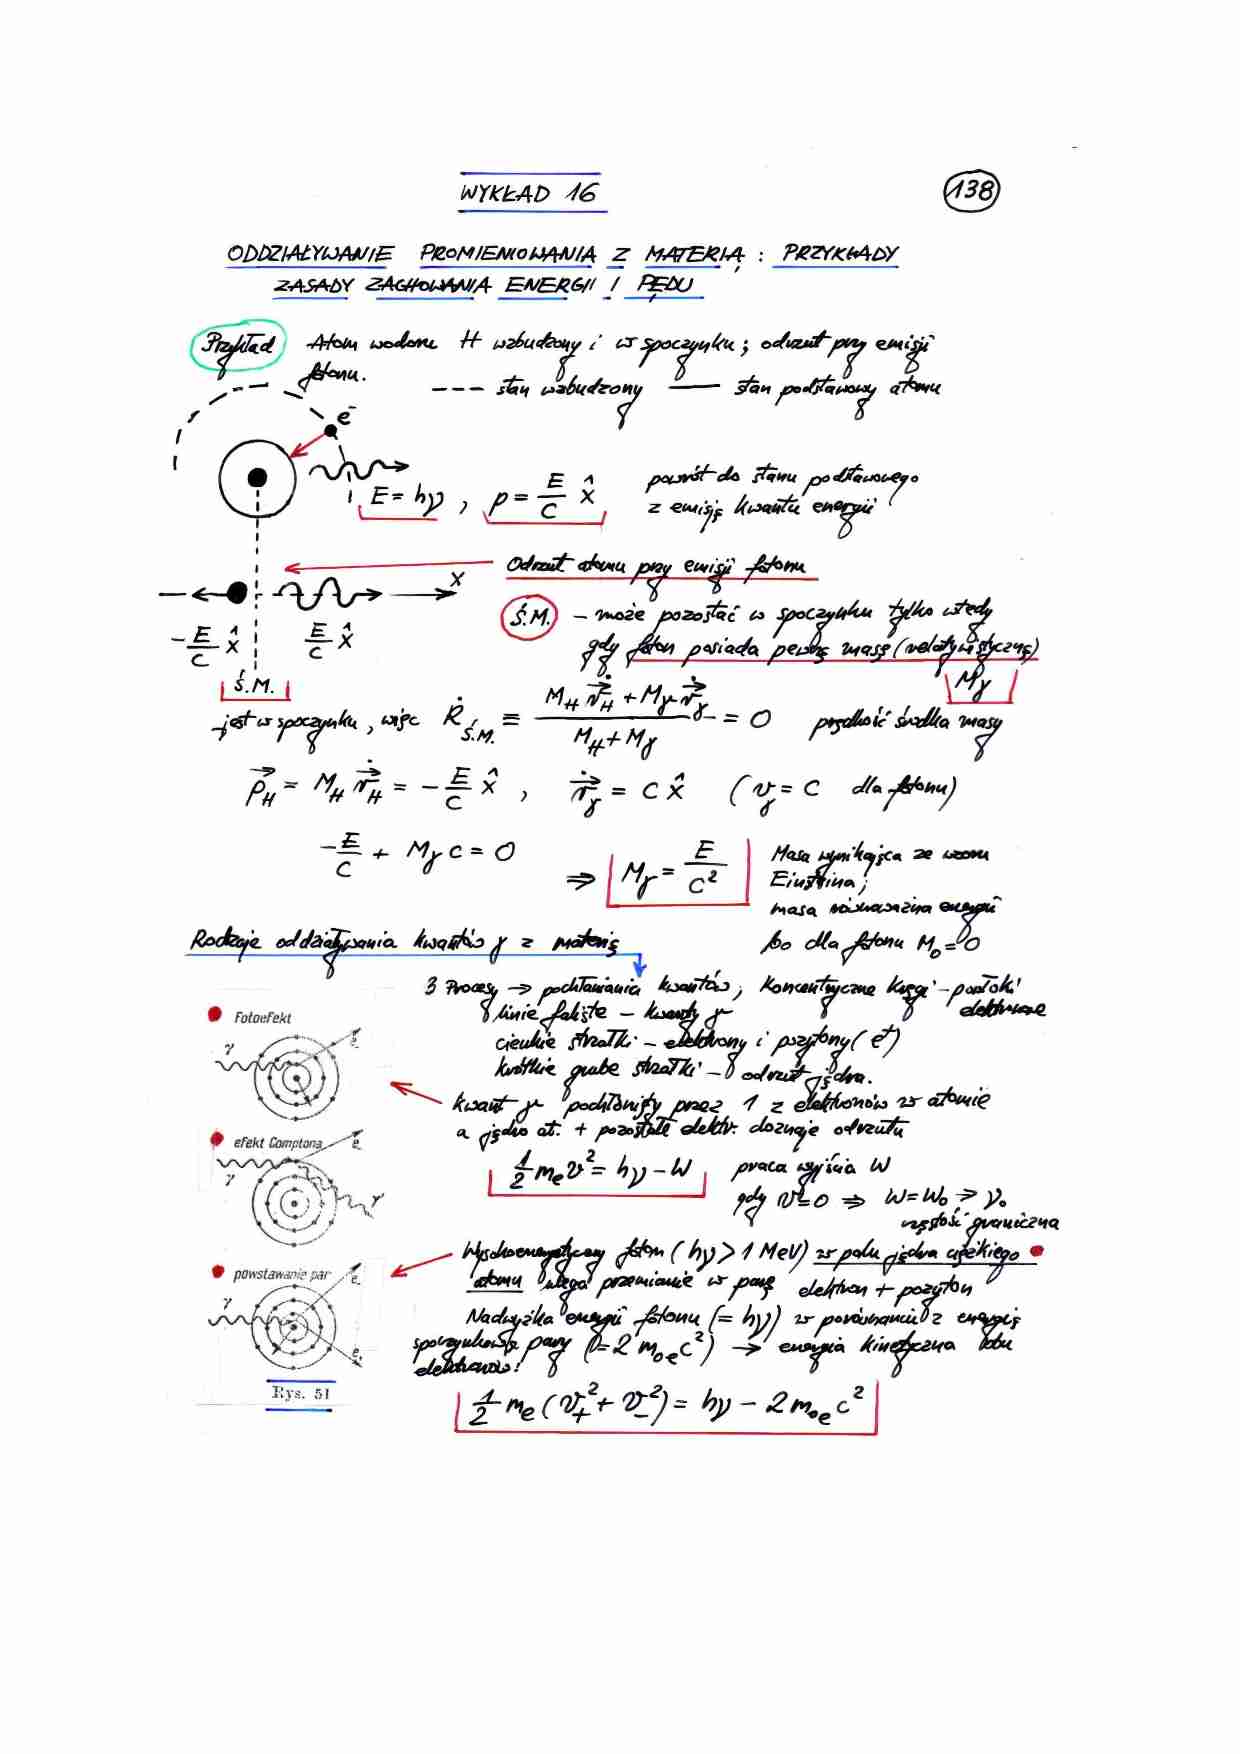 WYKŁAD 16
138
ODDZIAŁYWANIE PROMIENIOWANIA Z MATERIĄ : PRZYKŁADY
ZASADY ZACHOWANIA ENERGII I PĘDU
Przykład Atom wodoru H wzbudzony i w spoczynku; odrzut przy emisji
fotonu. --- stan wzbudzony — stan podstawowy atomu
e⁻
E = hν , p = E/C x̂ powrót do stanu podstawowego
z emisją kwantu energii
Odrzut atomu przy emisji fotonu
X
Ś.M. – może pozostać w spoczynku tylko wtedy
-E/C x̂ E/C x̂ gdy foton posiada pewną masę (relatywistyczną)
Mγ
Ś.M.
jest w spoczynku, więc Ṙ Ś.M. ≡ (M_H ṙ_H + Mγ ṙγ)/(M_H + Mγ) = 0 prędkość środka masy
p_H = M_H ṙ_H = -E/C x̂ , ṙγ = C x̂ (vγ = C dla fotonu)
-E/C + Mγ C = 0 ⇒ Mγ = E/C²
Masa wynikająca ze wzoru
Einsteina;
masa równoważna energii
bo dla fotonu M₀ = 0
Rodzaje oddziaływania kwantów γ z materią
3 Procesy → pochłaniania kwantów; Koncentryczne kręgi – powłoki
elektronowe
linie faliste – kwanty γ
cienkie strzałki – elektrony i pozytony (e⁺)
krótkie grube strzałki – odrzut jądra.
Fotoefekt
γ
e⁻
kwant γ pochłonięty przez 1 z elektronów w atomie
a jądro at. + pozostałe elektr. doznaje odrzutu
efekt Comptona
e⁻
γ
γ'
½ mₑv² = hν – W praca wyjścia W
gdy v = 0 ⇒ W = W₀ → ν₀
częstość graniczna
Wysokoenergetyczny foton (hν > 1 MeV) w polu jądra ciężkiego
atomu ulega przemianie w parę elektron + pozyton
powstawanie par
e⁻
γ
e₊
Nadwyżka energii fotonu (= hν) w porównaniu z energią
spoczynkową pary (= 2 m₀ₑc²) → energia kinetyczna obu
elektronów!
Rys. 51
½ mₑ (v₊² + v₋²) = hν – 2 m₀ₑ c²